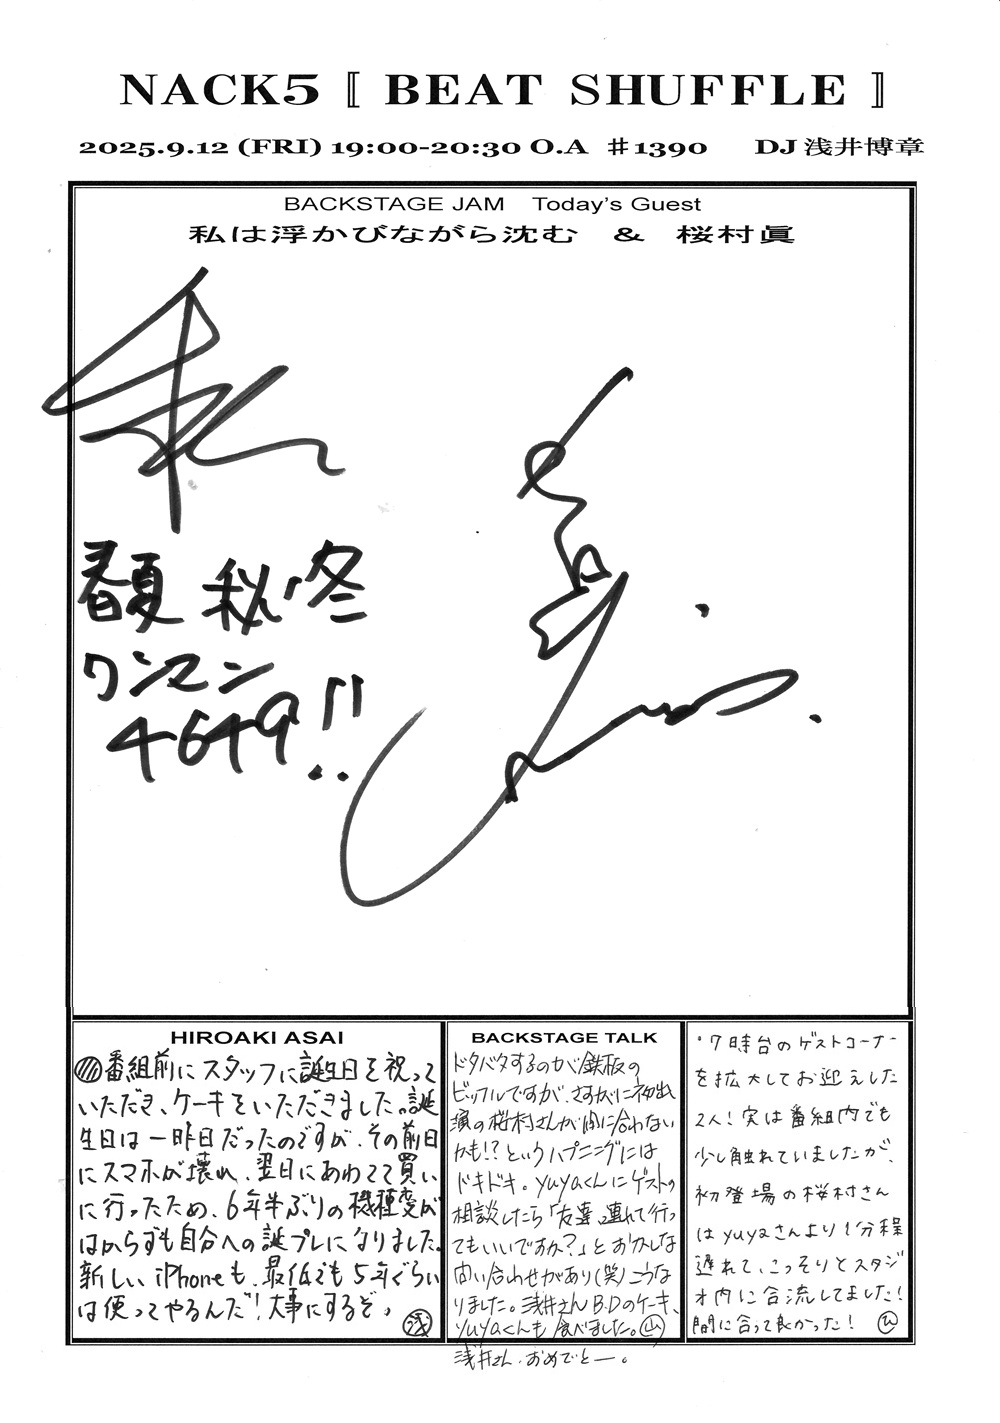 NACK5〚 BEAT SHUFFLE 〛
2025.9.12 (FRI) 19:00-20:30 O.A ♯1390 DJ 浅井博章
BACKSTAGE JAM Today's Guest
私は浮かびながら沈む & 桜村眞
春夏 秋 冬
ワンマン
4649!!
HIROAKI ASAI
番組前にスタッフに誕生日を祝って
いただき、ケーキをいただきました。誕
生日は一昨日だったのですが、その前日
にスマホが壊れ、翌日にあわてて買い
に行ったため、6年半ぶりの機種変が
はからずも自分への誕プレになりました。
新しいiPhoneも、最低でも5年ぐらい
は使ってやるんだ!大事にするぞっ
浅
BACKSTAGE TALK
ドタバタするのが鉄板の
ビッフルですが、さすがに初出
演の桜村さんが間に合わない
かも!?というハプニングには
ドキドキ。yuyaくんにゲストの
相談したら「友達連れて行っ
てもいいですか?」とおススしな
問い合わせがあり(笑)こうな
りました。浅井さんB.Dのケーキ、
yuyaくんも食べました。山
浅井さん、おめでとー。
・7時台のゲストコーナー
を拡大してお迎えした
2人!実は番組内でも
少し触れていましたが、
初登場の桜村さん
はyuyaさんより1分程
遅れて、こっそりとスタジ
オ内に合流してました!
間に合って良かった! ひ